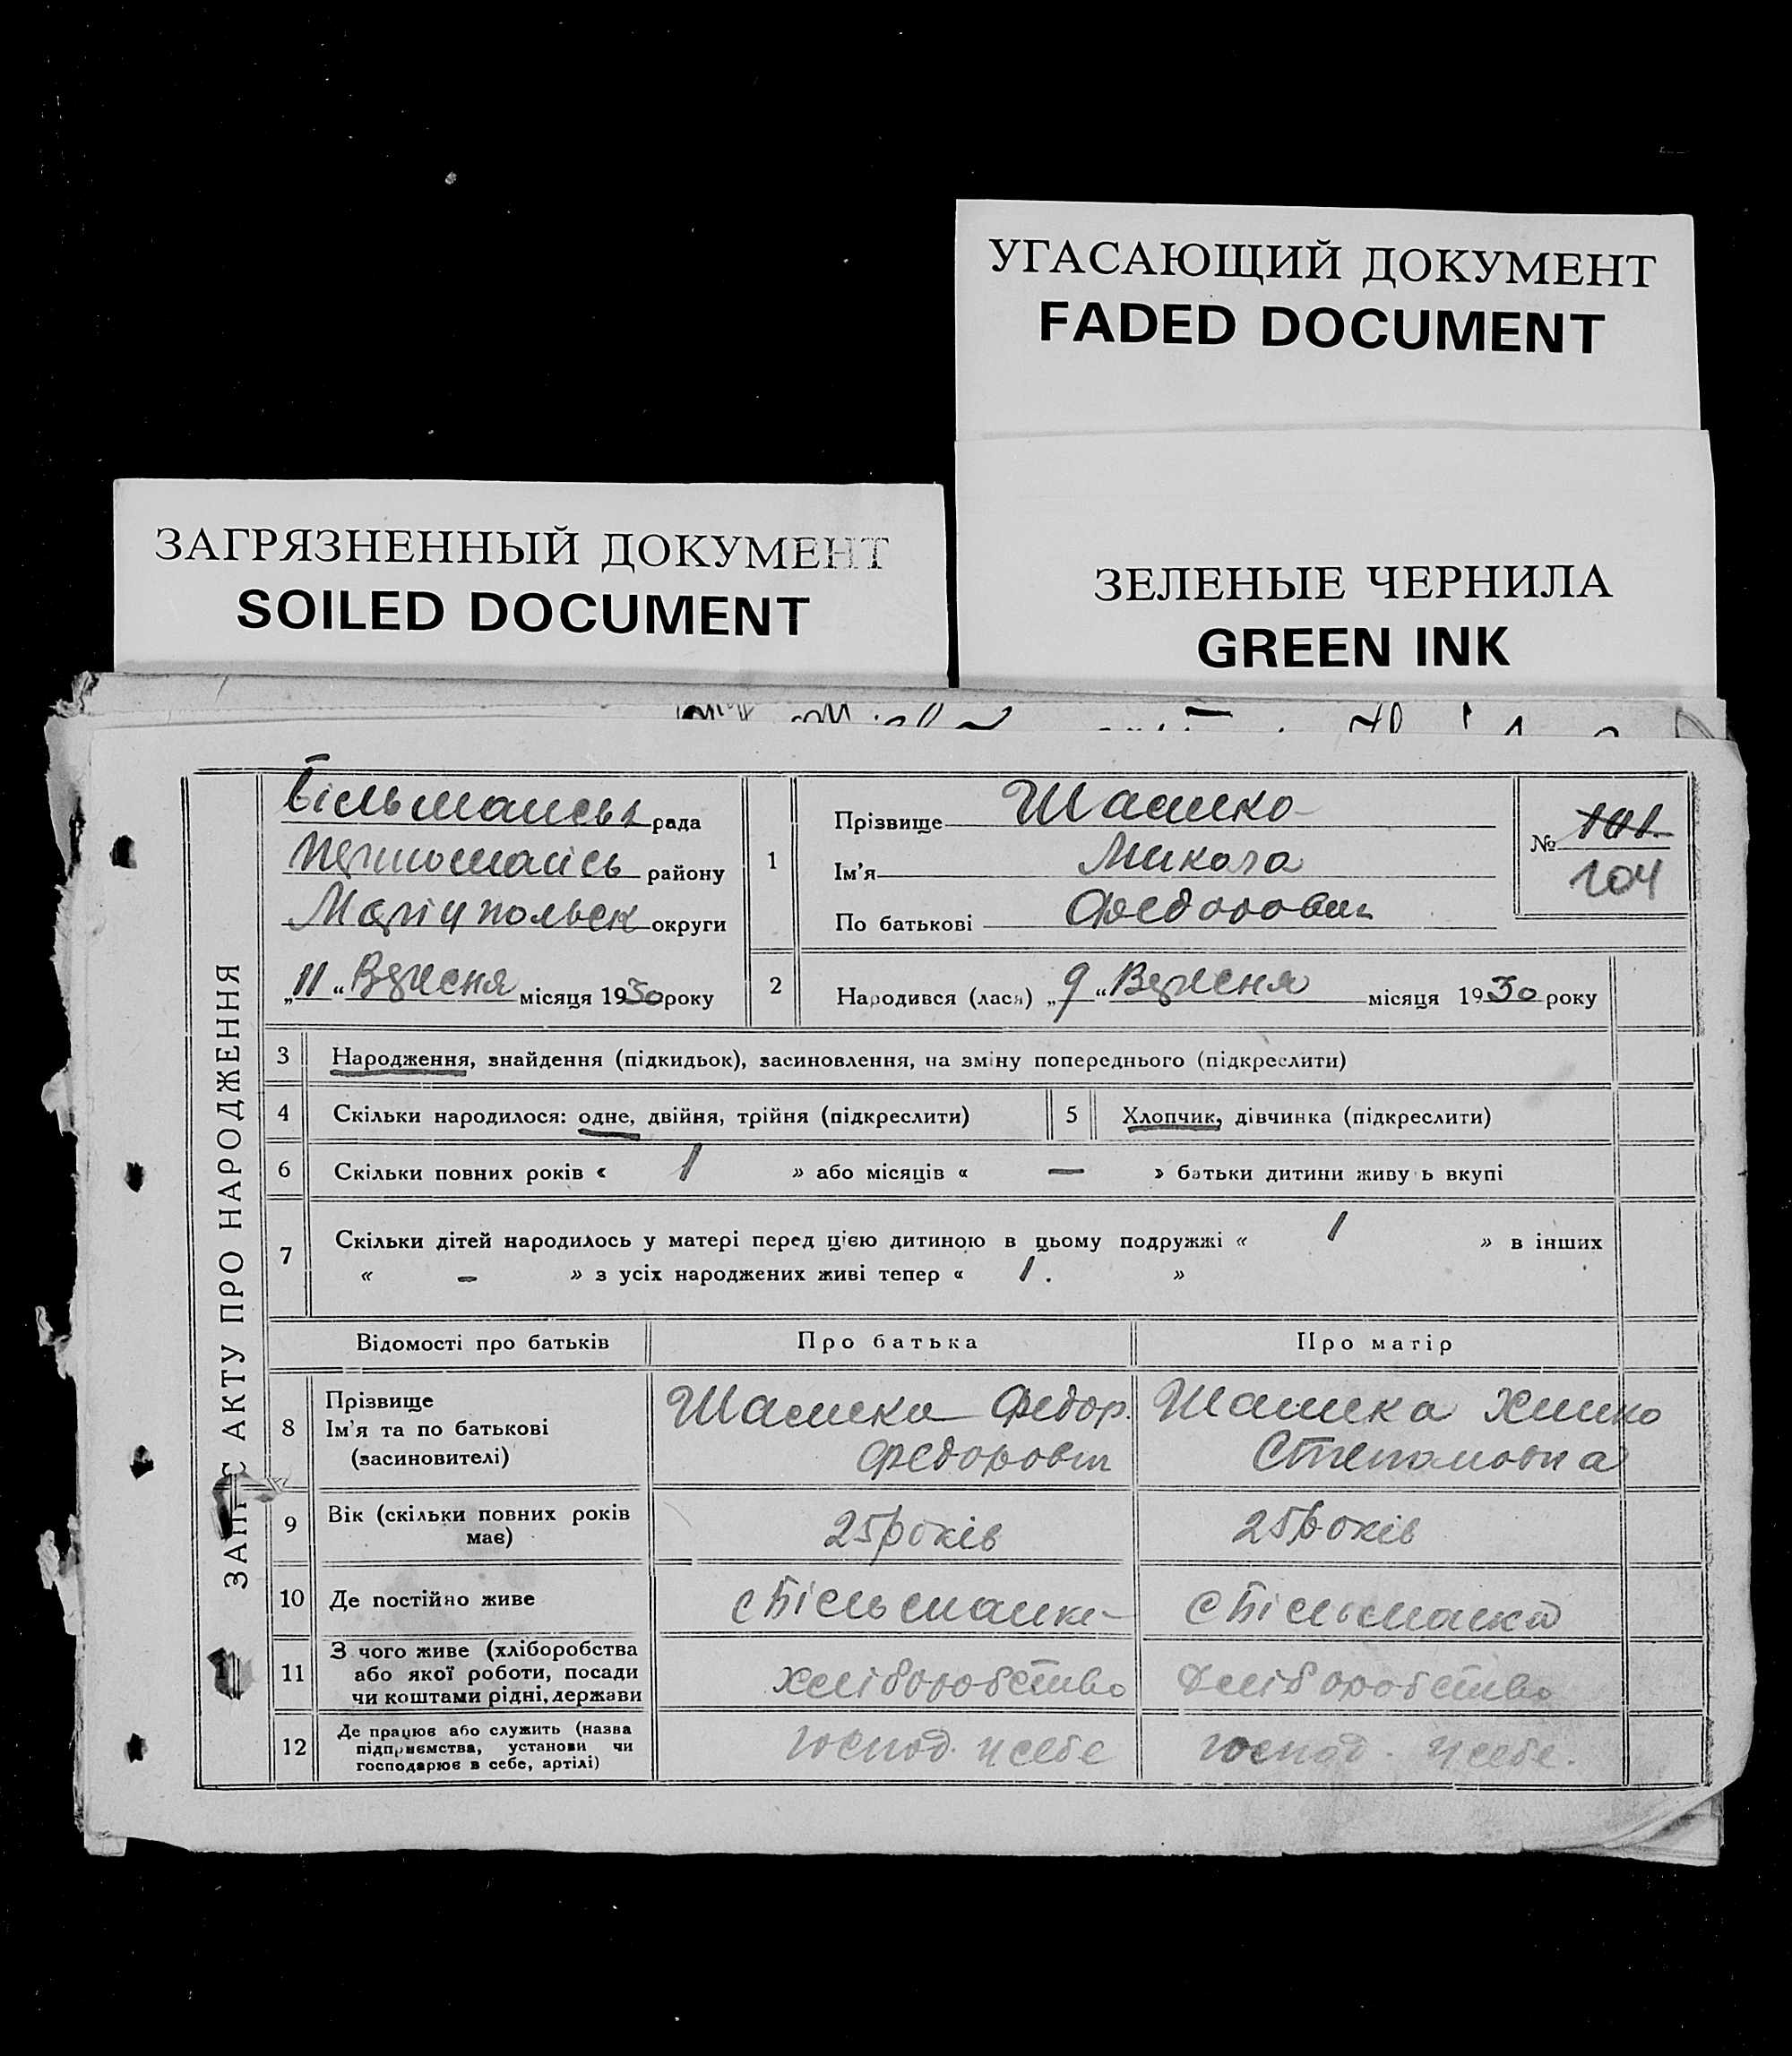 УГАСАЮЩИЙ ДОКУМЕНТ
FADED DOCUMENT
ЗАГРЯЗНЕННЫЙ ДОКУМЕНТ
SOILED DOCUMENT
ЗЕЛЕНЫЕ ЧЕРНИЛА
GREEN INK
ЗАПИС АКТУ ПРО НАРОДЖЕННЯ
Більманськ рада
району
Маріупольск округи
„11“ Вересня місяця 1930 року
1
Прізвище Шамко
Ім'я Микола
По батькові Федорович
№ 101.
104
2 Народився (лася) „9“ Вересня місяця 1930 року
3 Народження, знайдення (підкидьок), засиновлення, на зміну попереднього (підкреслити)
4 Скільки народилося: одне, двійня, трійня (підкреслити)
5 Хлопчик, дівчинка (підкреслити)
6 Скільки повних років « 1 » або місяців « — » батьки дитини живу ь вкупі
7 Скільки дітей народилось у матері перед цією дитиною в цьому подружжі « 1 » в інших
« – » з усіх народжених живі тепер « 1. »
Відомості про батьків Про батька Про матір
8 Прізвище
Ім'я та по батькові
(засиновителі)
Федор.
Федорович
Степановна
9 Вік (скільки повних років
має)
25 років 25 років
10 Де постійно живе с Більманка с Більманка
11 З чого живе (хліборобства
або якої роботи, посади
чи коштами рідні, держави
хліборобство хліборобство
12 Де працює або служить (назва
підприємства, установи чи
господарює в себе, артілі)
господ. у себе господ. у себе.